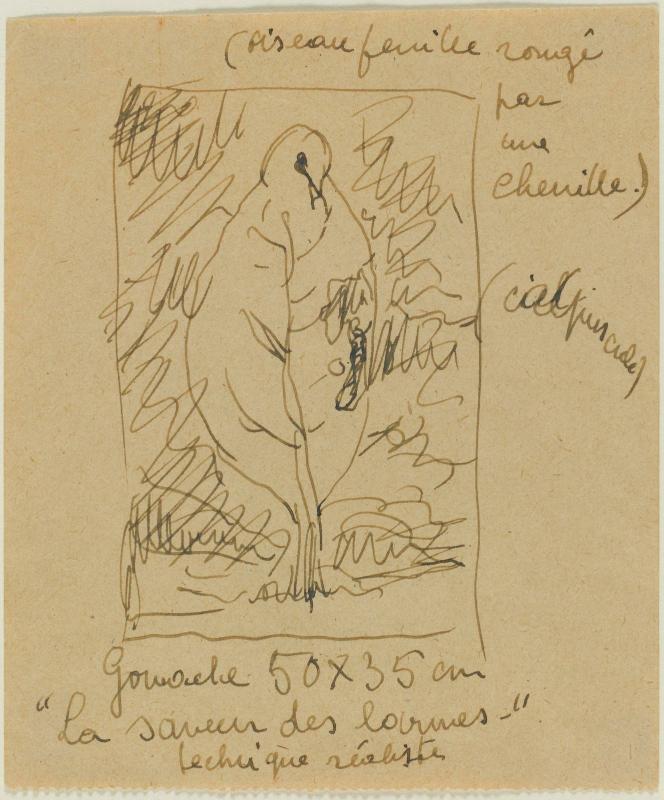 (oiseau feuille rongé
par
une
chenille.)
(ciel
Gouache 50X35 cm
"La saveur des larmes-"
technique réaliste